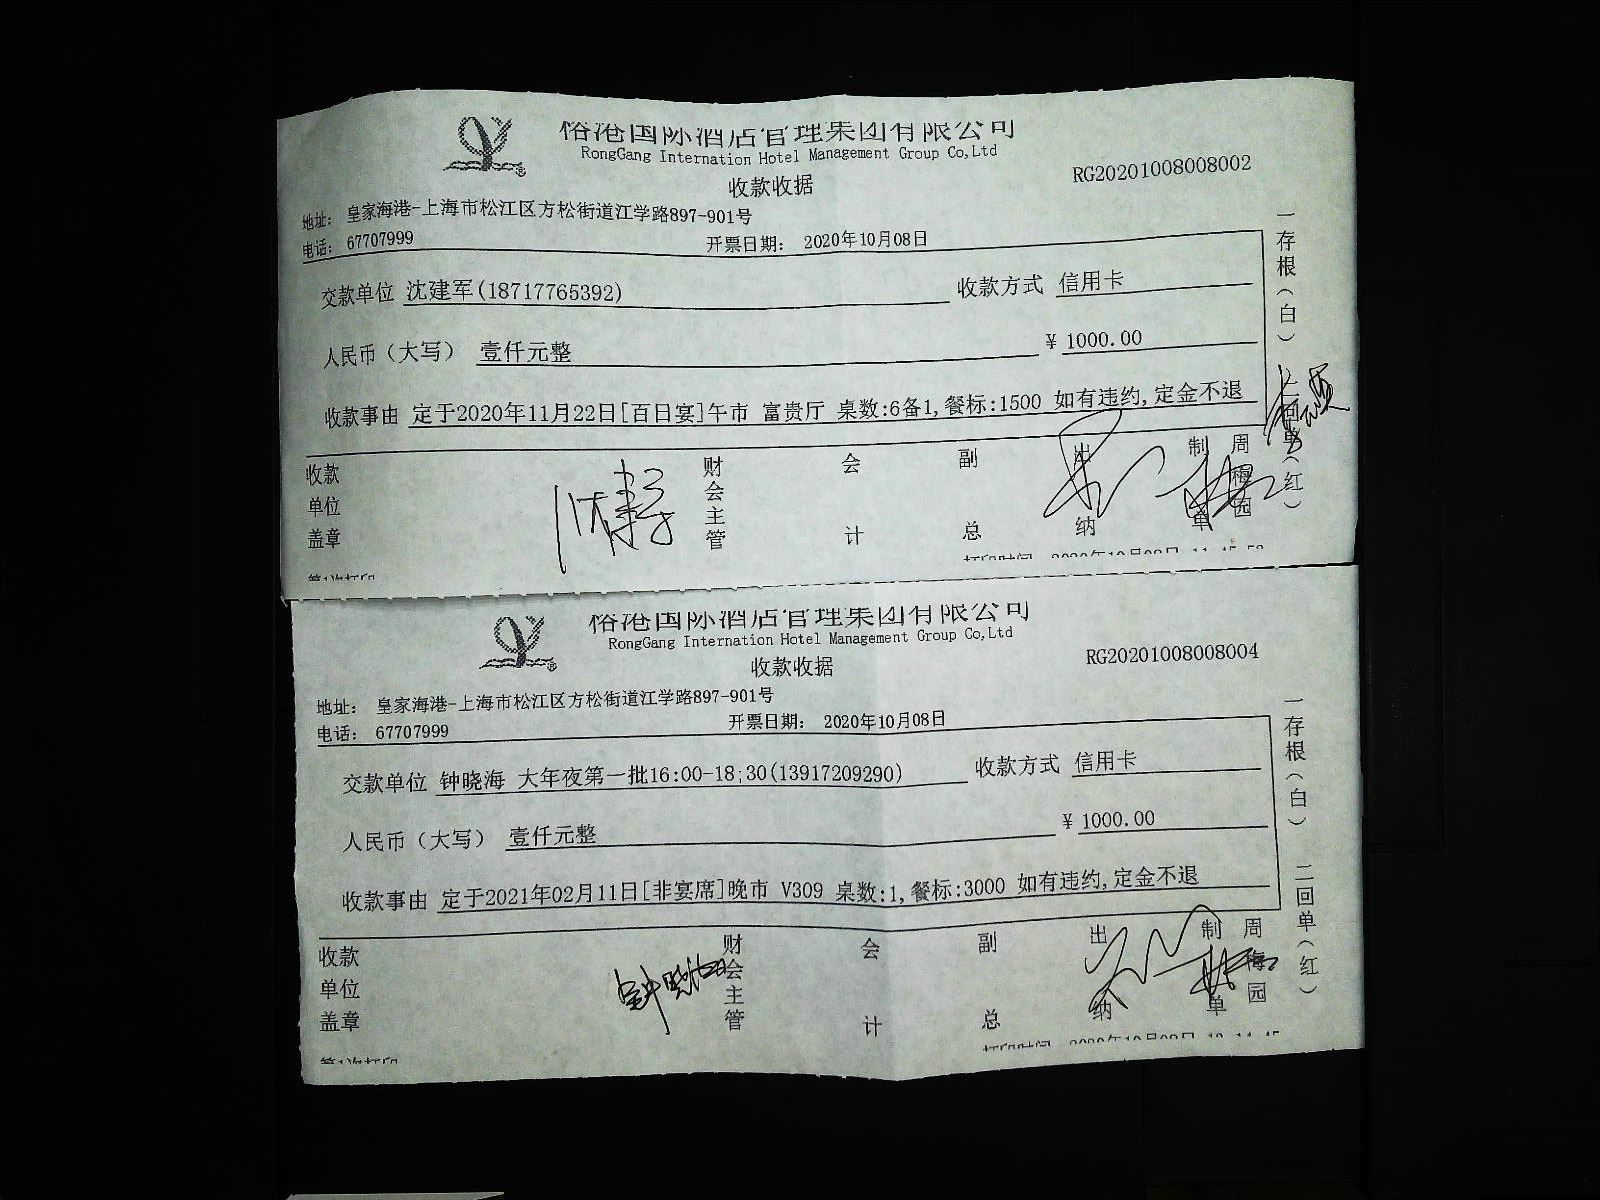 俗港国际酒店管理集团有限公司
RongGang Internation Hotel Management Group Co,Ltd
收款收据
RG20201008008002
地址： 皇家海港-上海市松江区方松街道江学路897-901号
电话： 67707999 开票日期： 2020年10月08日
交款单位 沈建军(18717765392) 收款方式 信用卡
人民币（大写） 壹仟元整 ¥ 1000.00
收款事由 定于2020年11月22日[百日宴]午市 富贵厅 桌数:6备1,餐标:1500 如有违约,定金不退
一存根（白） 二回单（红）
收款单位盖章 财会主管 会计 副总 出纳 制单 周梅园
第1次打印 打印时间 2020年10月08日 11:45:52
俗港国际酒店管理集团有限公司
RongGang Internation Hotel Management Group Co,Ltd
收款收据
RG20201008008004
地址： 皇家海港-上海市松江区方松街道江学路897-901号
电话： 67707999 开票日期： 2020年10月08日
交款单位 钟晓海 大年夜第一批16:00-18;30(13917209290) 收款方式 信用卡
人民币（大写） 壹仟元整 ¥ 1000.00
收款事由 定于2021年02月11日[非宴席]晚市 V309 桌数:1,餐标:3000 如有违约,定金不退
一存根（白） 二回单（红）
收款单位盖章 钟晓海 财会主管 会计 副总 出纳 制单 周梅园
第1次打印 打印时间 2020年10月08日